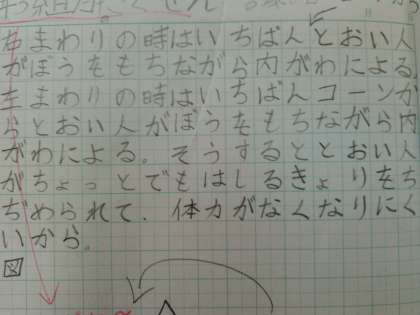 右まわりの時はいちばんとおい人
がぼうをもちながら内がわによる
左まわりの時はいちばんコーンか
らとおい人がぼうをもちながら内
がわによる。そうするととおい人
がちょっとでもはしるきょりをち
ぢめられて、体力がなくなりにく
いから。
図